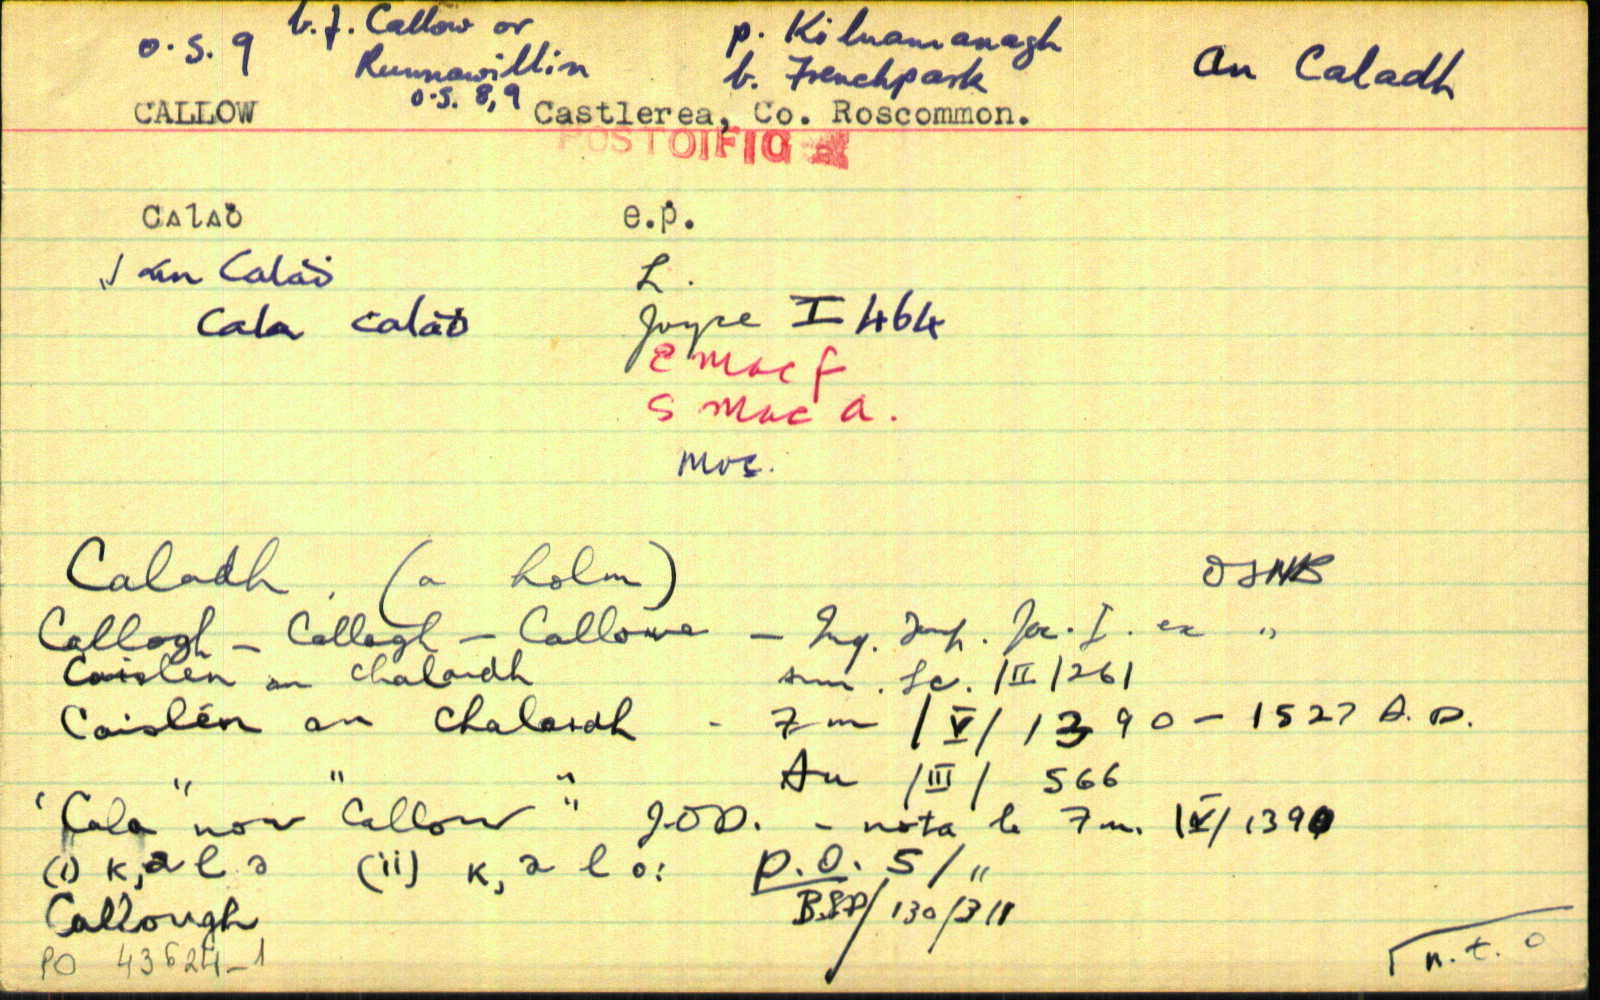 o.s. 9 b.f. Callow or p. Kilnamanagh An Caladh
Runnawillin b. Frenchpark
o.s. 8, 9
CALLOW Castlerea, Co. Roscommon.
POST OIFIG
Calaḋ e.p.
√ An Calaḋ L.
Cala calaḋ Joyce I 464
E Mac F
S Mac A.
Moc.
Caladh. (a holm) OSNB
Callogh – Callagh – Callowe – Inq. Temp. Jac. I. ex "
Caislén an Chalaidh Ann. Lc. /II/261
Caislén an Chalaidh - Fm /V/ 1390 – 1527 A.D.
" " " Au /III/ 566
"Cala" now "Callow" J.O'D. – nota le Fm. IV/1390
(i) k,alə (ii) k,alo: P.O. S/"
Callough BSD/130/311
PO 43624_1
n.t.o